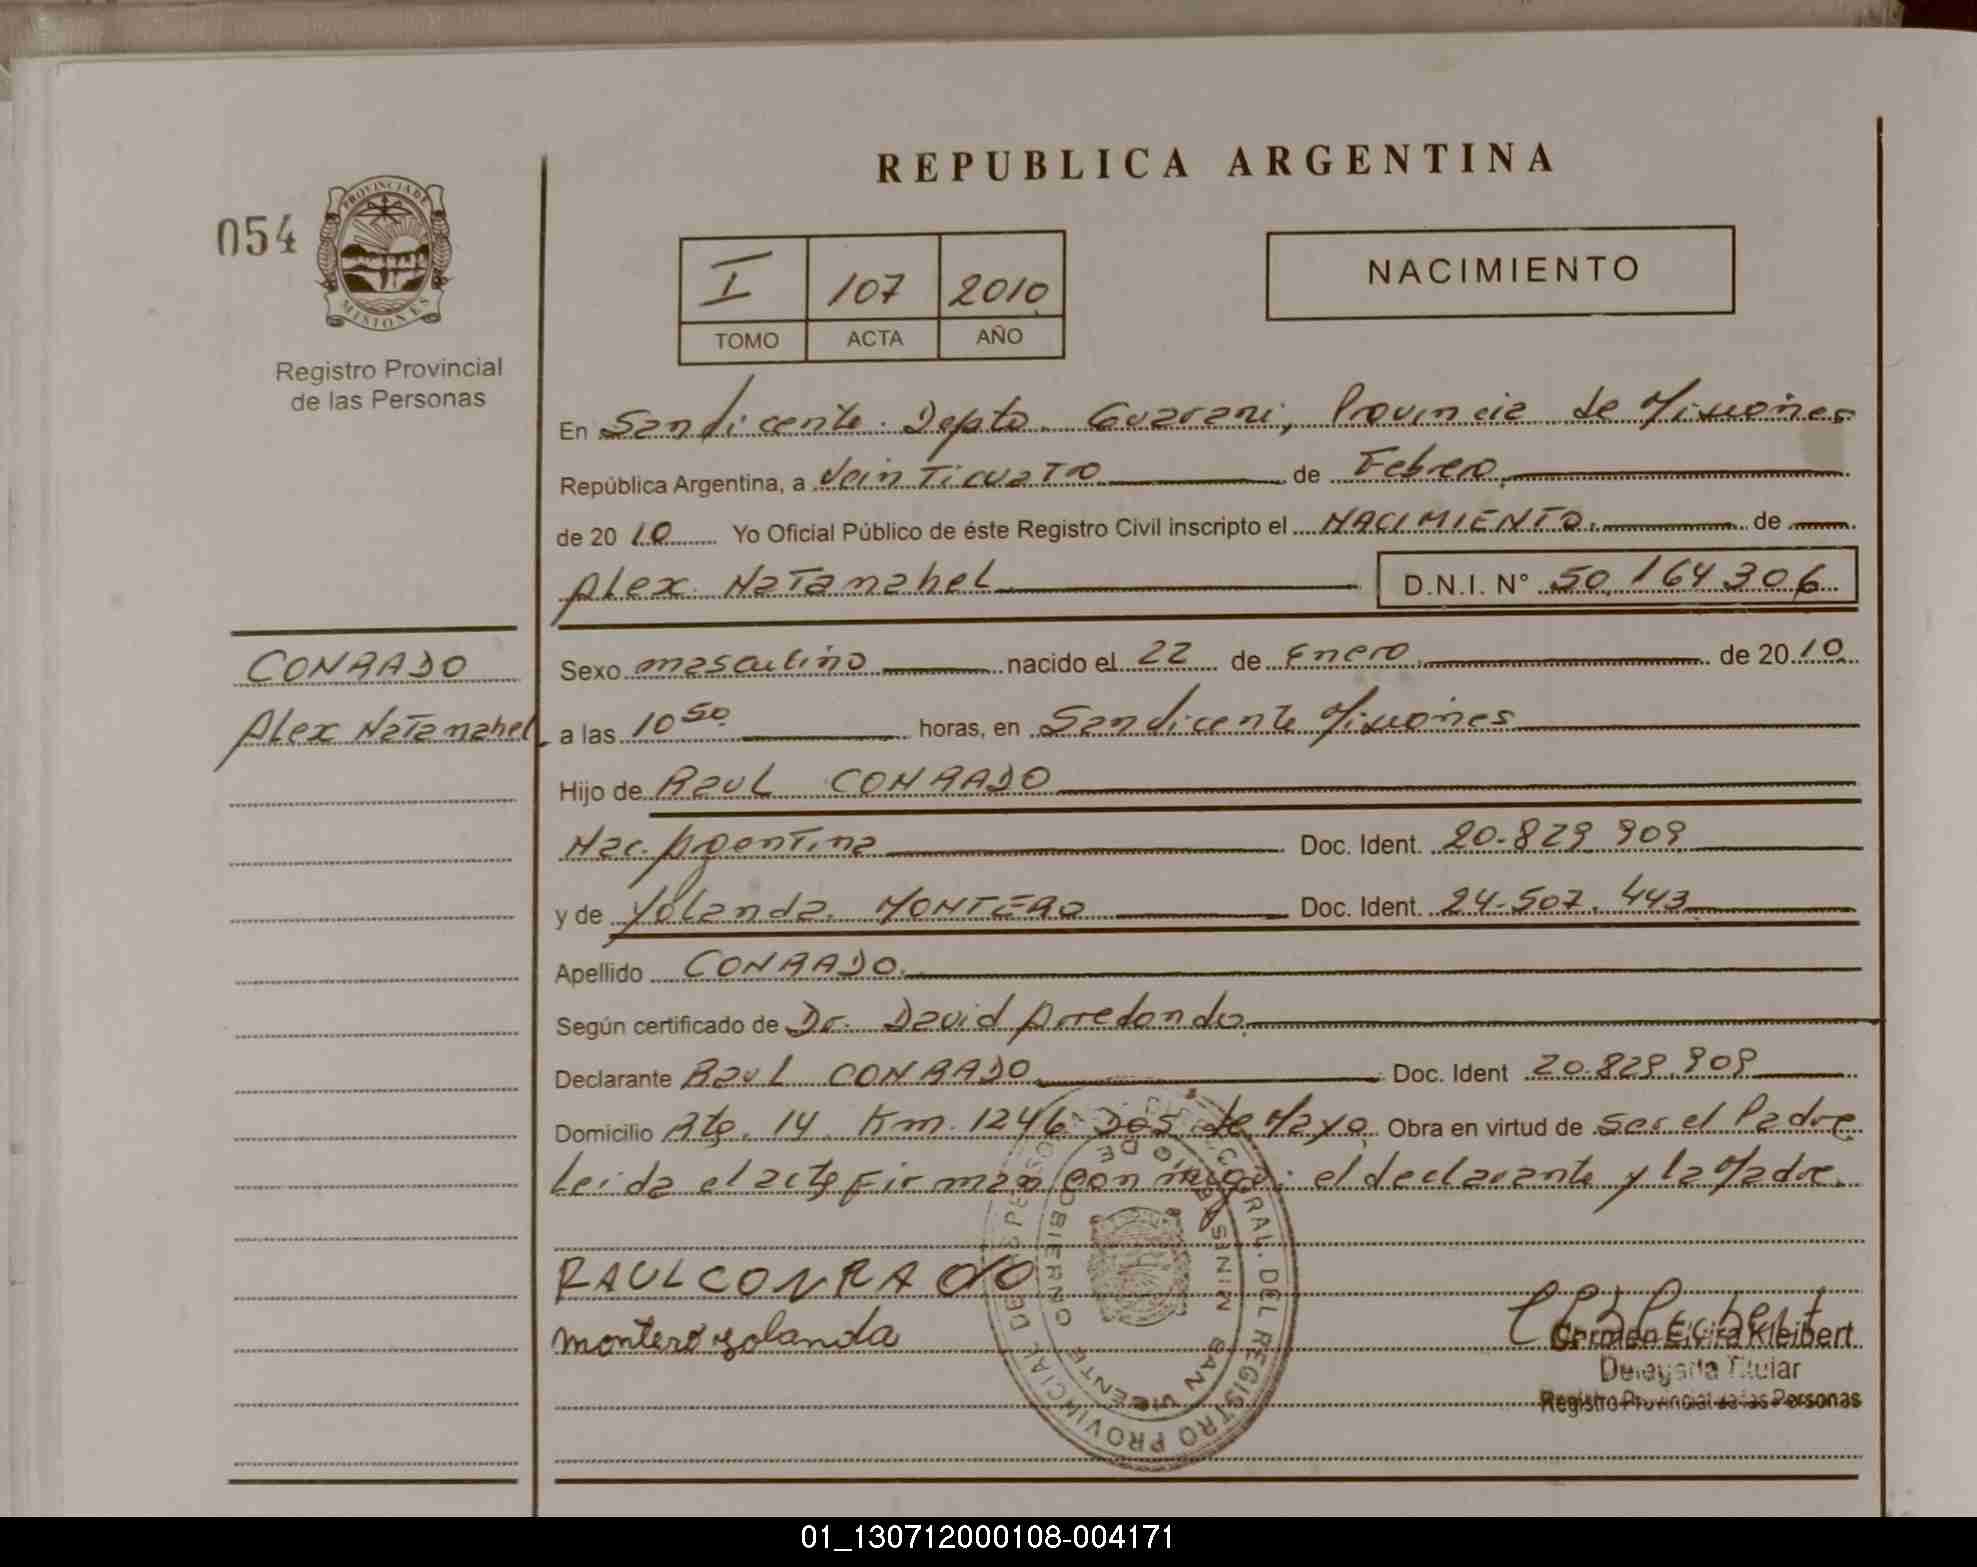 REPUBLICA ARGENTINA
054
PROVINCIA DE
MISIONES
Registro Provincial
de las Personas
I 107 2010
TOMO ACTA AÑO
NACIMIENTO
En San Vicente. Depto. Guarani, Provincia de Misiones
República Argentina, a Veinticuatro de Febrero
de 2010 Yo Oficial Público de éste Registro Civil inscripto el NACIMIENTO. de
Alex Natanahel D.N.I. N° 50.164306
CONRADO
Alex Natanahel
Sexo masculino nacido el 22 de Enero de 2010
a las 10 50 horas, en San Vicente Misiones
Hijo de Raul CONRADO
Nac. Argentina Doc. Ident. 20.829.909
y de Yolanda MONTERO Doc. Ident. 24.507.443
Apellido CONRADO.
Según certificado de Dr. David Arredondo
Declarante Raul CONRADO Doc. Ident 20.829.909
Domicilio Rta. 14 Km. 1246 Dos de Mayo Obra en virtud de ser el Padre
leida el acta firman con migo: el declarante y la Madre.
RAUL CONRADO
montero yolanda
Carmen Elvira Kleibert
Delegada Titular
Registro Provincial de las Personas
GENERAL DEL REGISTRO PROVINCIAL DE
GOBIERNO
SAN VICENTE
01_130712000108-004171